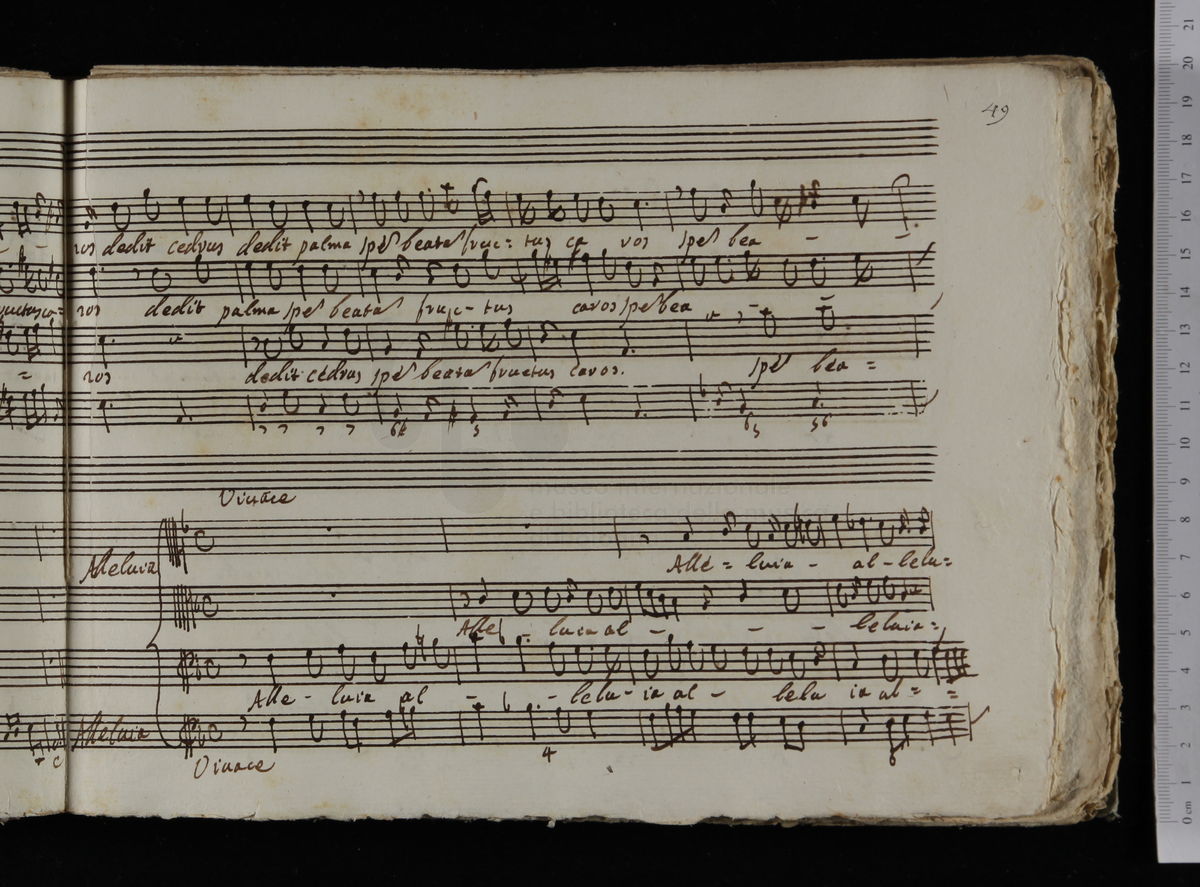 49
ros dedit cedrus dedit palma spes beata fruc= tus ca ros spes bea - -
ructus ca= ros dedit palma spes beata fruc- tus caros spes bea - -
= ros dedit cedrus spes beata fructus caros. spes bea =
7 7 7 7 6 5 6 5 5 6
Vivace
Alleluia
Alle = luia - al-lelu=
Alle - luia al - - - leluia=
Alle - luia al - - lelu- ia al - lelu ia al= =
Alleluia
4 6
Vivace
museo internazionale
e biblioteca della musica
21
20
19
18
17
16
15
14
13
12
11
10
9
8
7
6
5
4
3
2
1
0 cm